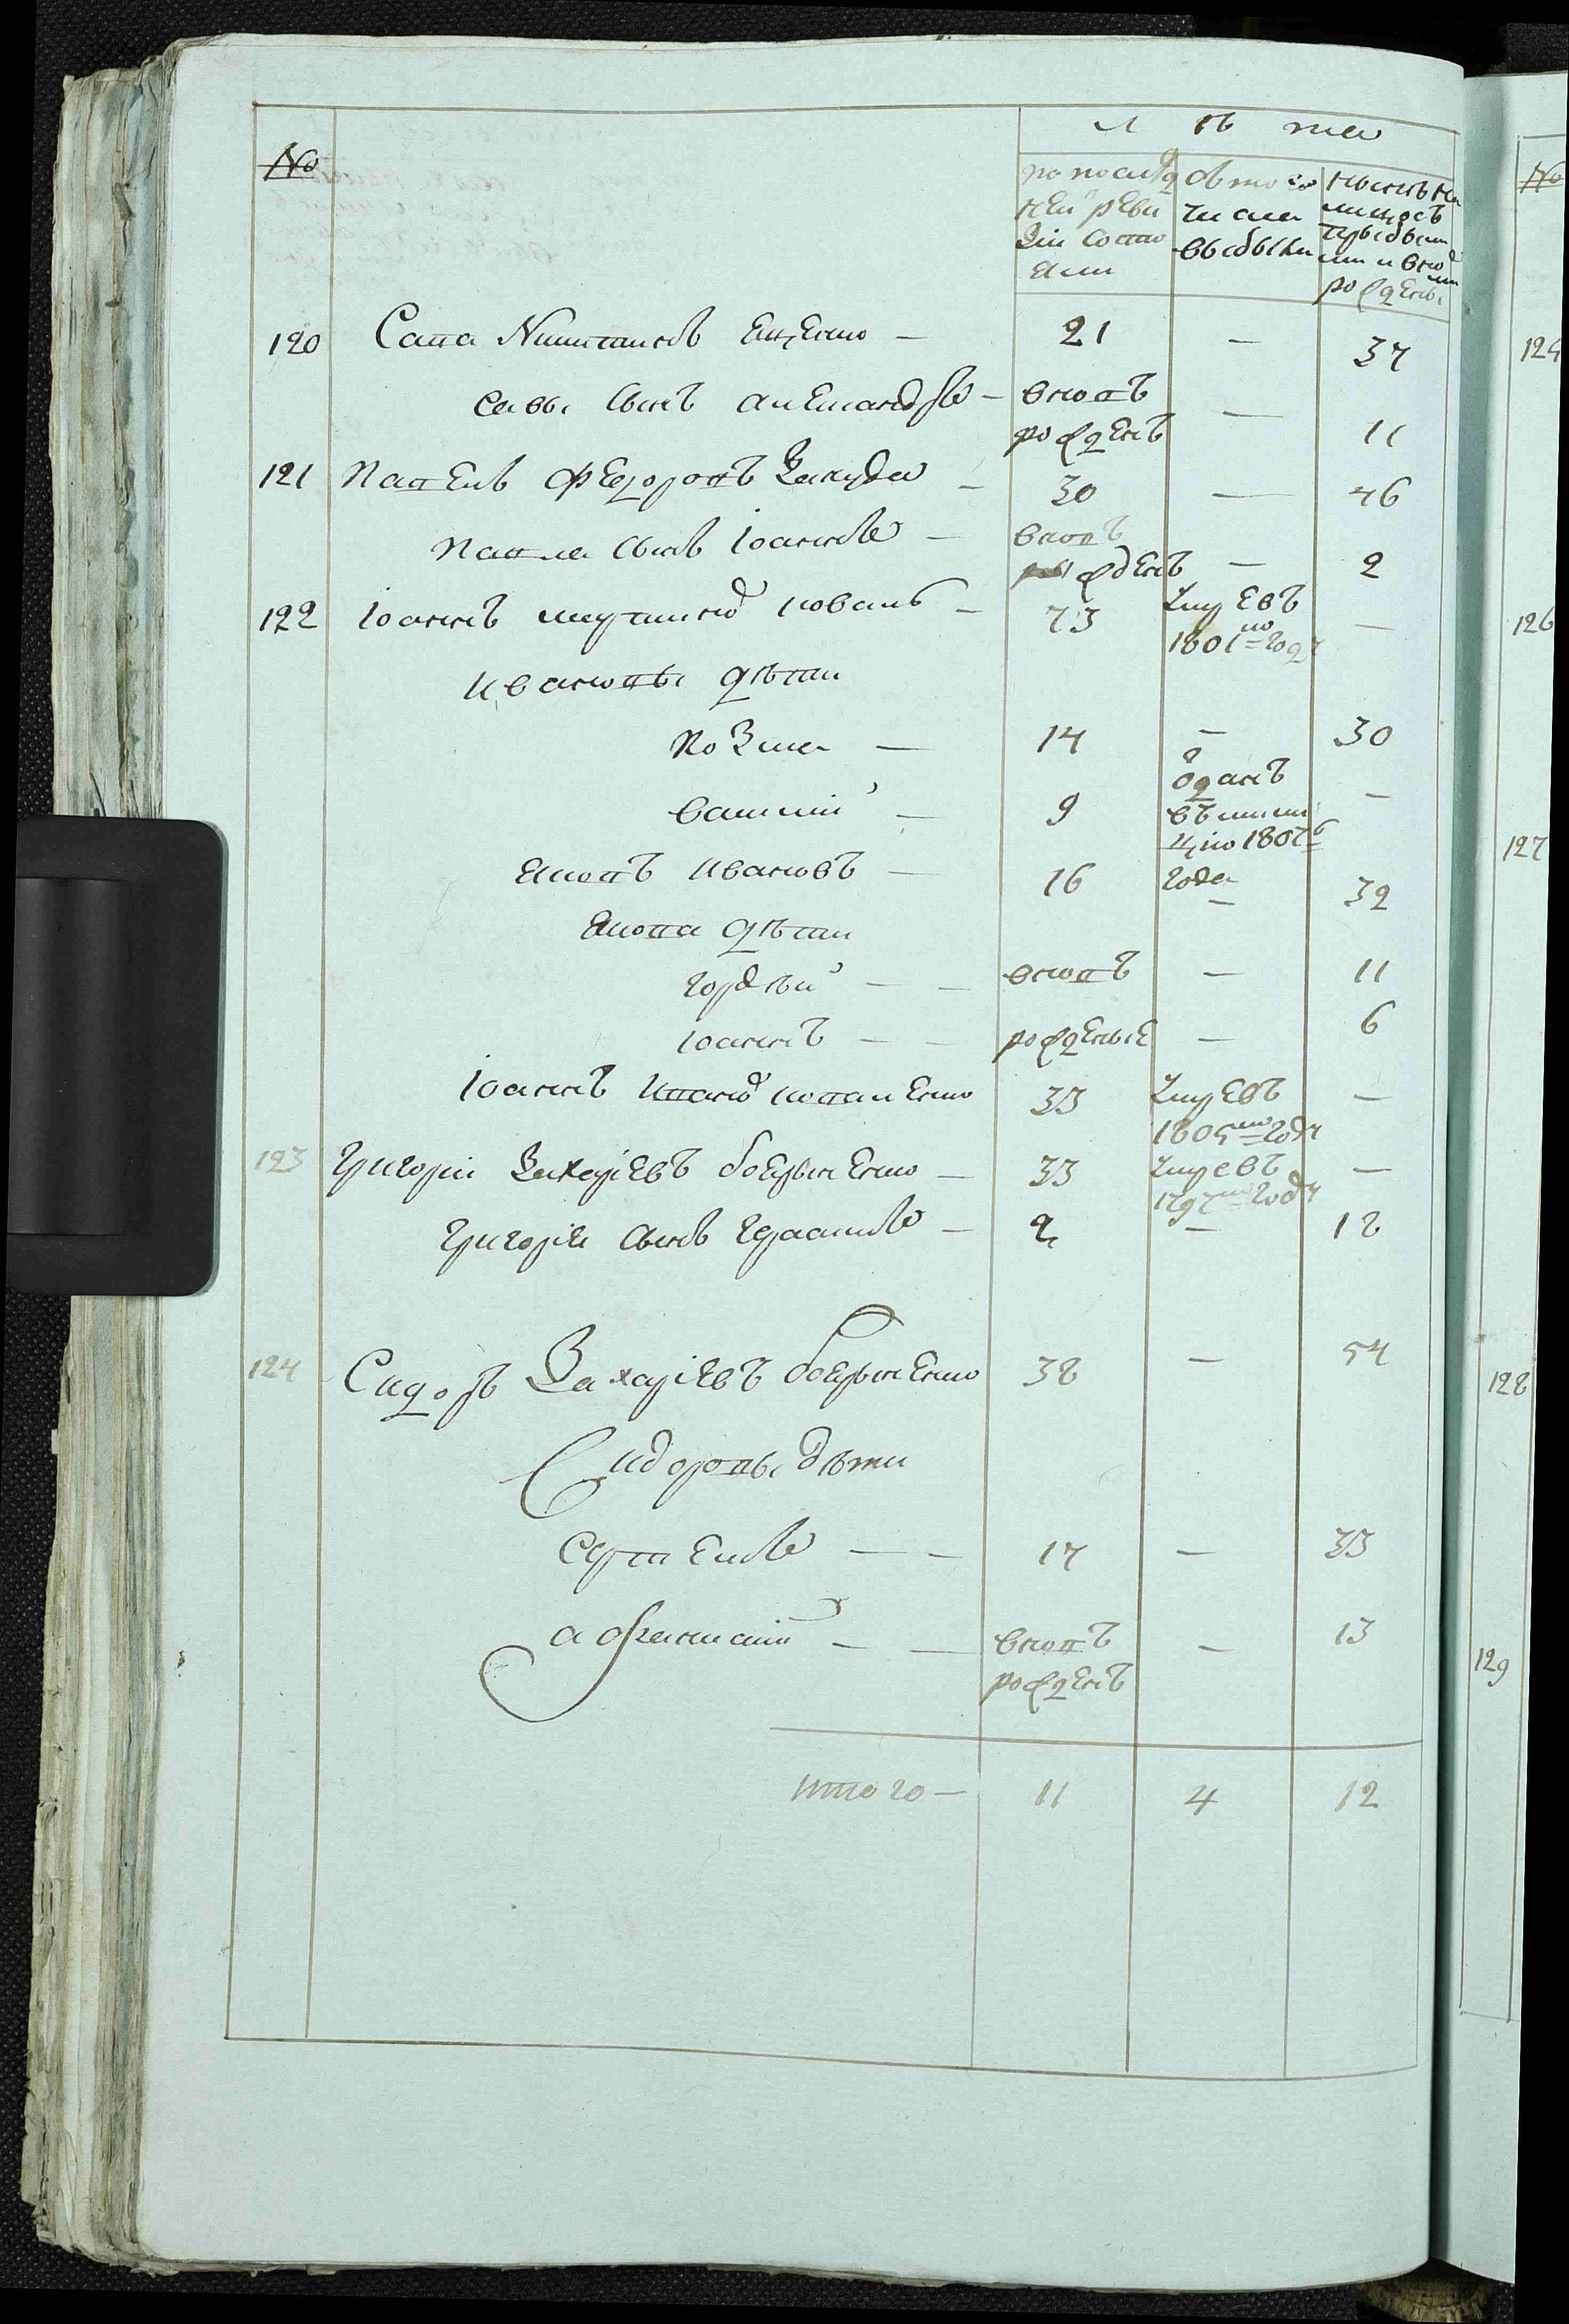 № лѣта
по послѣд ней ревизіи состояли
овтого числа выбыли
нынѣ на лицо съ прыбыли ми и внов ми рожденны
120 Сава Никитинъ Ященко — 21 — 37
Савы сынъ александръ — вновъ рожденъ — 11
121 Павелъ Федоровъ Закуда — 30 — 46
Павла сынъ Іоаннъ — вновъ рожденъ — 2
122 Іоаннъ коваль — 73 умревъ 1801 году —
Ивановы дѣти
Козма — 14 — 30
василій — 9 оданъ въ милицію 1807 года —
Яковъ Ивановъ — 16 — 32
Якова дѣти
Гордѣй — — вновъ — 11
Іоаннъ — — рожденые — 6
Іоаннъ Иванов коваленко 33 умревъ 1805 году —
123 Григорій Захаріевъ — 33 умревъ 1797 году —
Григорія сынъ Герасимъ — 2 — 18
124 Сидоръ Захаріевъ 38 — 54
Сидоровы дѣти
Савелъ — — 17 — 33
афанасій — — вновъ рожденъ — 13
итого — 11 4 12
№
126
127
128
129